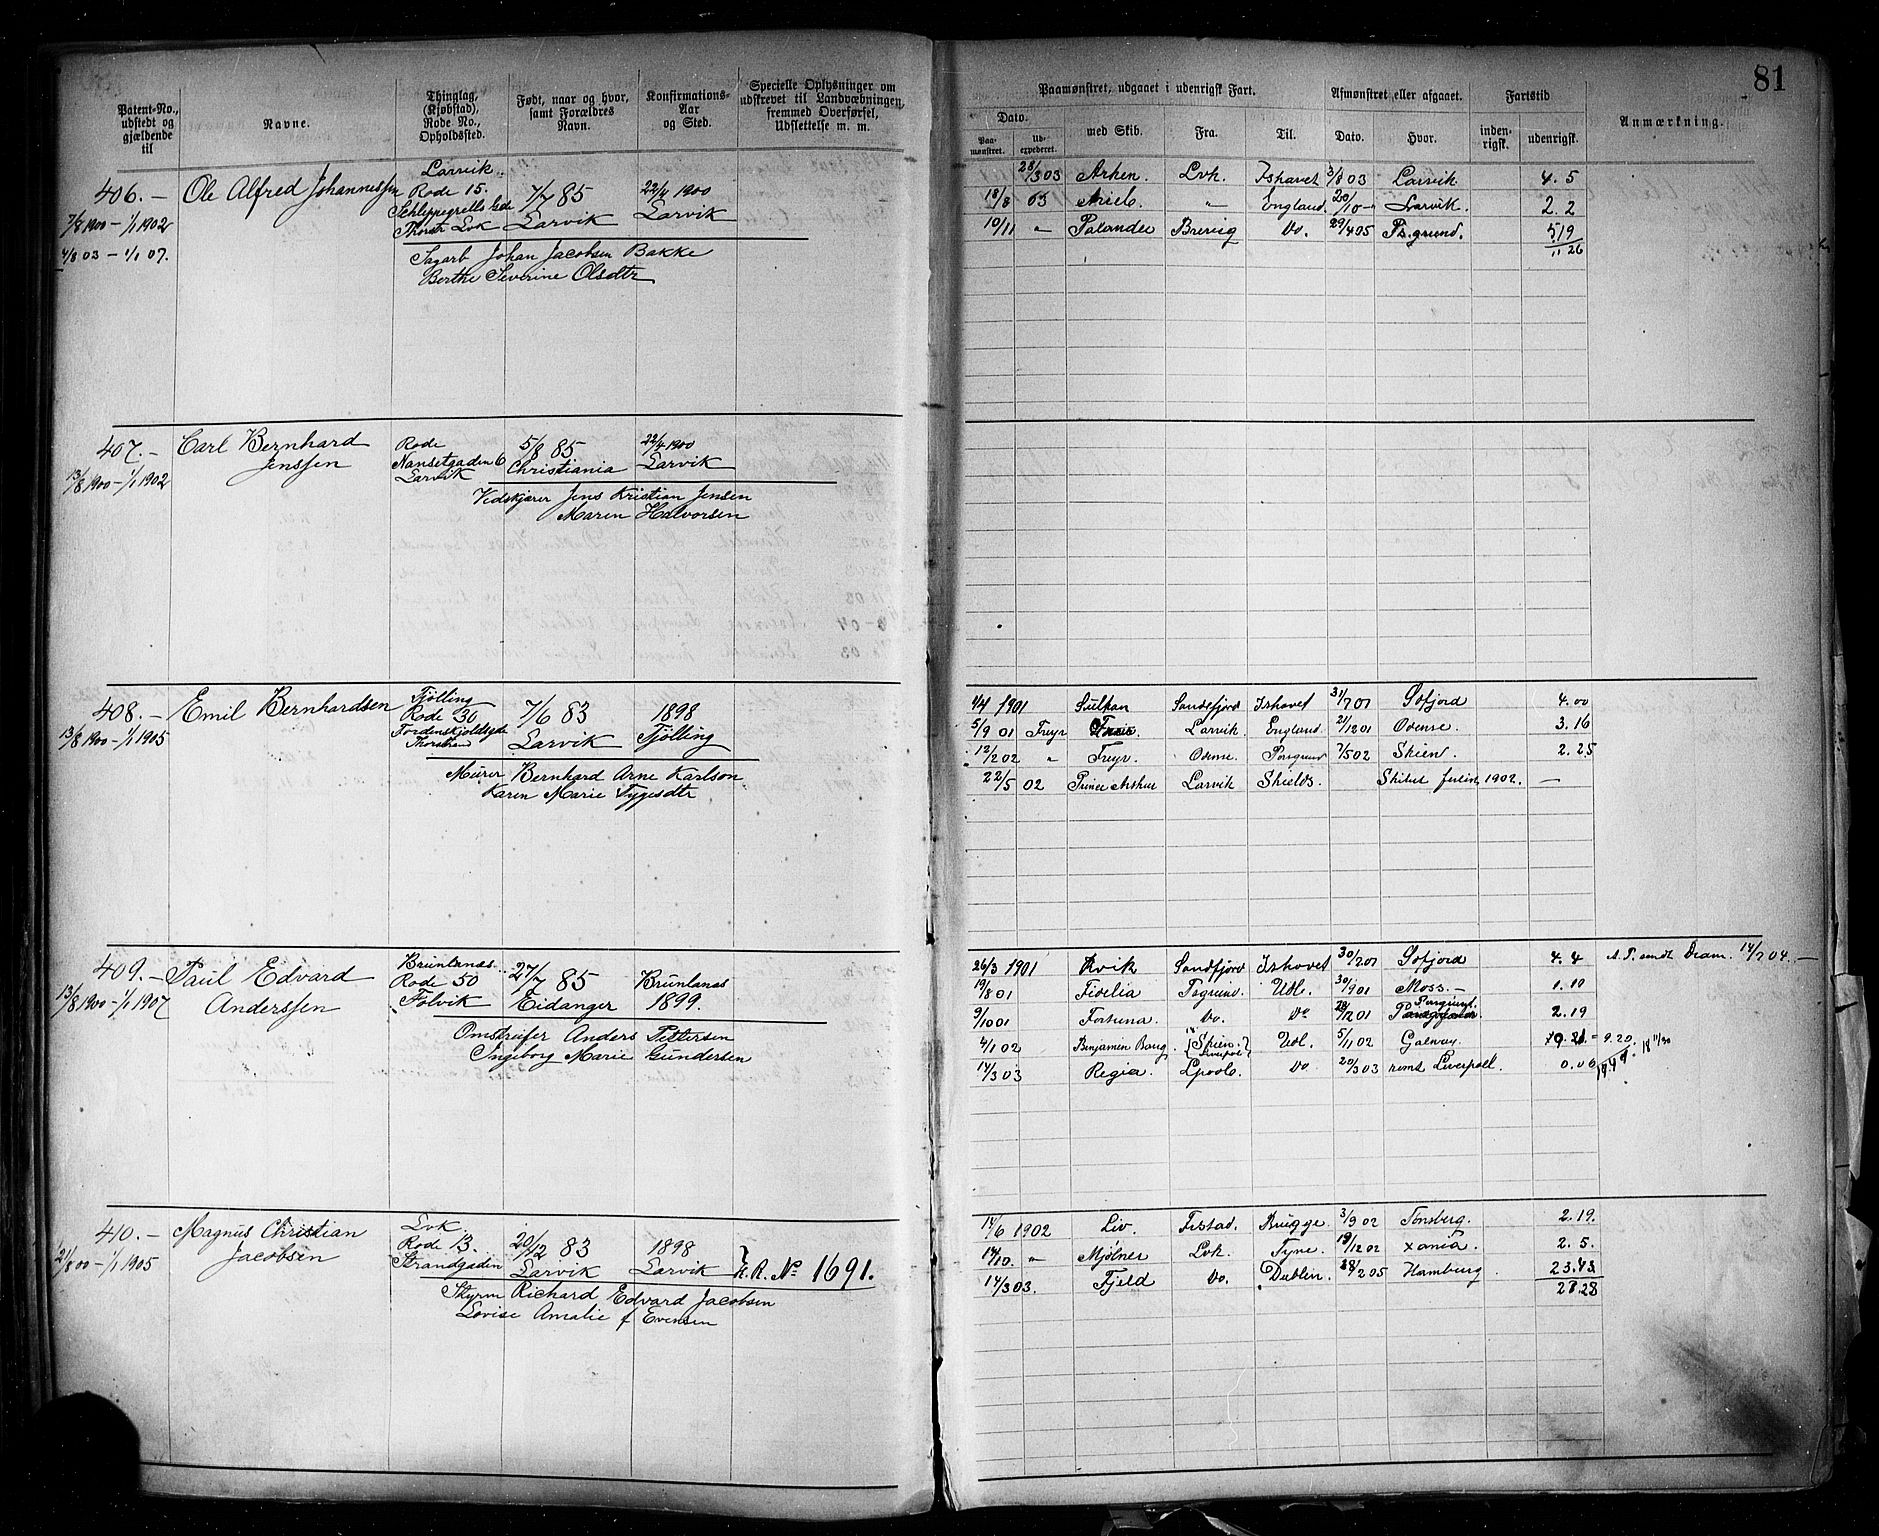 81
Patent-No., udstedt og gjældende til
Navne.
Thinglag, (Kjøbstad), Rode No., Opholdssted.
Født, naar og hvor, samt Forældres Navn.
Konfirmations-Aar og Sted.
Specielle Oplysninger om udskrevet til Landværbningen, fremmed Overførsel, Udslettelse m. m.
Paamønstret, udgaaet i udenrigsk Fart.
Afmønstret eller afgaaet.
Fartstid
Anmærkning.
Dato.
Paamønstret.
Udexpederet.
med Skib.
Fra.
Til.
Dato.
Hvor.
indenrigsk.
udenrigsk.
406.— Ole Alfred Johannessen
7/8 1900 — 1/1 1902
4/8 03 — 1/1 07.
Larvik
Rode 15.
Thorstr Lvk
7/7 85
Larvik
22/4 1900
Larvik
Sagarb Johan Jacobsen Bakke
Berthe Severine Olsdtr
28/3 03 Arken Lvk. Ishavet 3/8 03 Larvik 4.5
18/8 03 Ariel. " England. 20/10 — Larvik. 2.2
10/11 " Palander Brevig Do. 29/4 05 Ps.grund. 5.19
11 26
407.— Carl Bernhard Jenssen
13/8 1900 — 1/1 1902
Rode
Nansetgaden 6
Larvik
5/8 85
Christiania
22/4 1900
Larvik
Vedskjærer Jens Kristian Jensen
Maren Halvorsen
408.— Emil Bernhardsen
13/8 1900 — 1/1 1905
Tjølling
Rode 30
Tordenskjoldsgde
Thorstran
7/6 83
Larvik
1898
Tjølling
Murer Bernhard Arne Karlson
Karen Marie Tygesdtr
4/4 1901 Sultan Sandefjord Ishavet 31/7 01 Gofjord 4.00
5/9 01 Freyr Larvik England. 21/12 01 Odense. 3.16
12/2 02 " Freyr. Odense Porsgrund 7/5 02 Skien. 2.25
22/5 02 Prince Arthur Larvik Shields. Skibet forlist 1902. —
409.— Paul Edvard Anderssen
13/8 1900 — 1/1 1907
Brunlanæs
Rode 50
Folvik
27/7 85
Eidanger
Brunlanæs
1899.
Omstreifer Anders Pettersen
Ingeborg Marie Gundersen
26/3 1901 Rvik Sandfjord Ishavet 30/7 01 Gofjord 4.4 A.P. sendt Dram. 14/2 04.—
19/8 01 Fidelia Psgrund. Udl. 30/9 01 Moss.— 1.10
9/10 01 Fortuna. Do. Do 28/12 01 Porsgrund. 2.19
4/1 02 Benjamin Bang. Skien. Liverpol Udl. 5/11 02 Galway. 9.21 = 9.20.
14/3 03 Regia. Lpoole. Do 20/3 03 rømt Liverpoll. 0.06
410.— Magnus Christian Jacobsen
21/8 00 — 1/1 1905
Lvk.
Rode 13.
Strandgaden
20/12 83
Larvik
1898
Larvik
H.R. No 1691.
Styrm Richard Edvard Jacobsen
Lovise Amalie f Evensen
14/6 1902 Liv. Frstad. Brügge. 3/9 02 Tønsberg. 2.19.
14/10. " Mjølner Lvk. Tyne. 19/12 02 Xania. 2.5.
14/3 03. Fjeld Do. Dublin. 28/2 05 Hamburg. 23.13
27.28